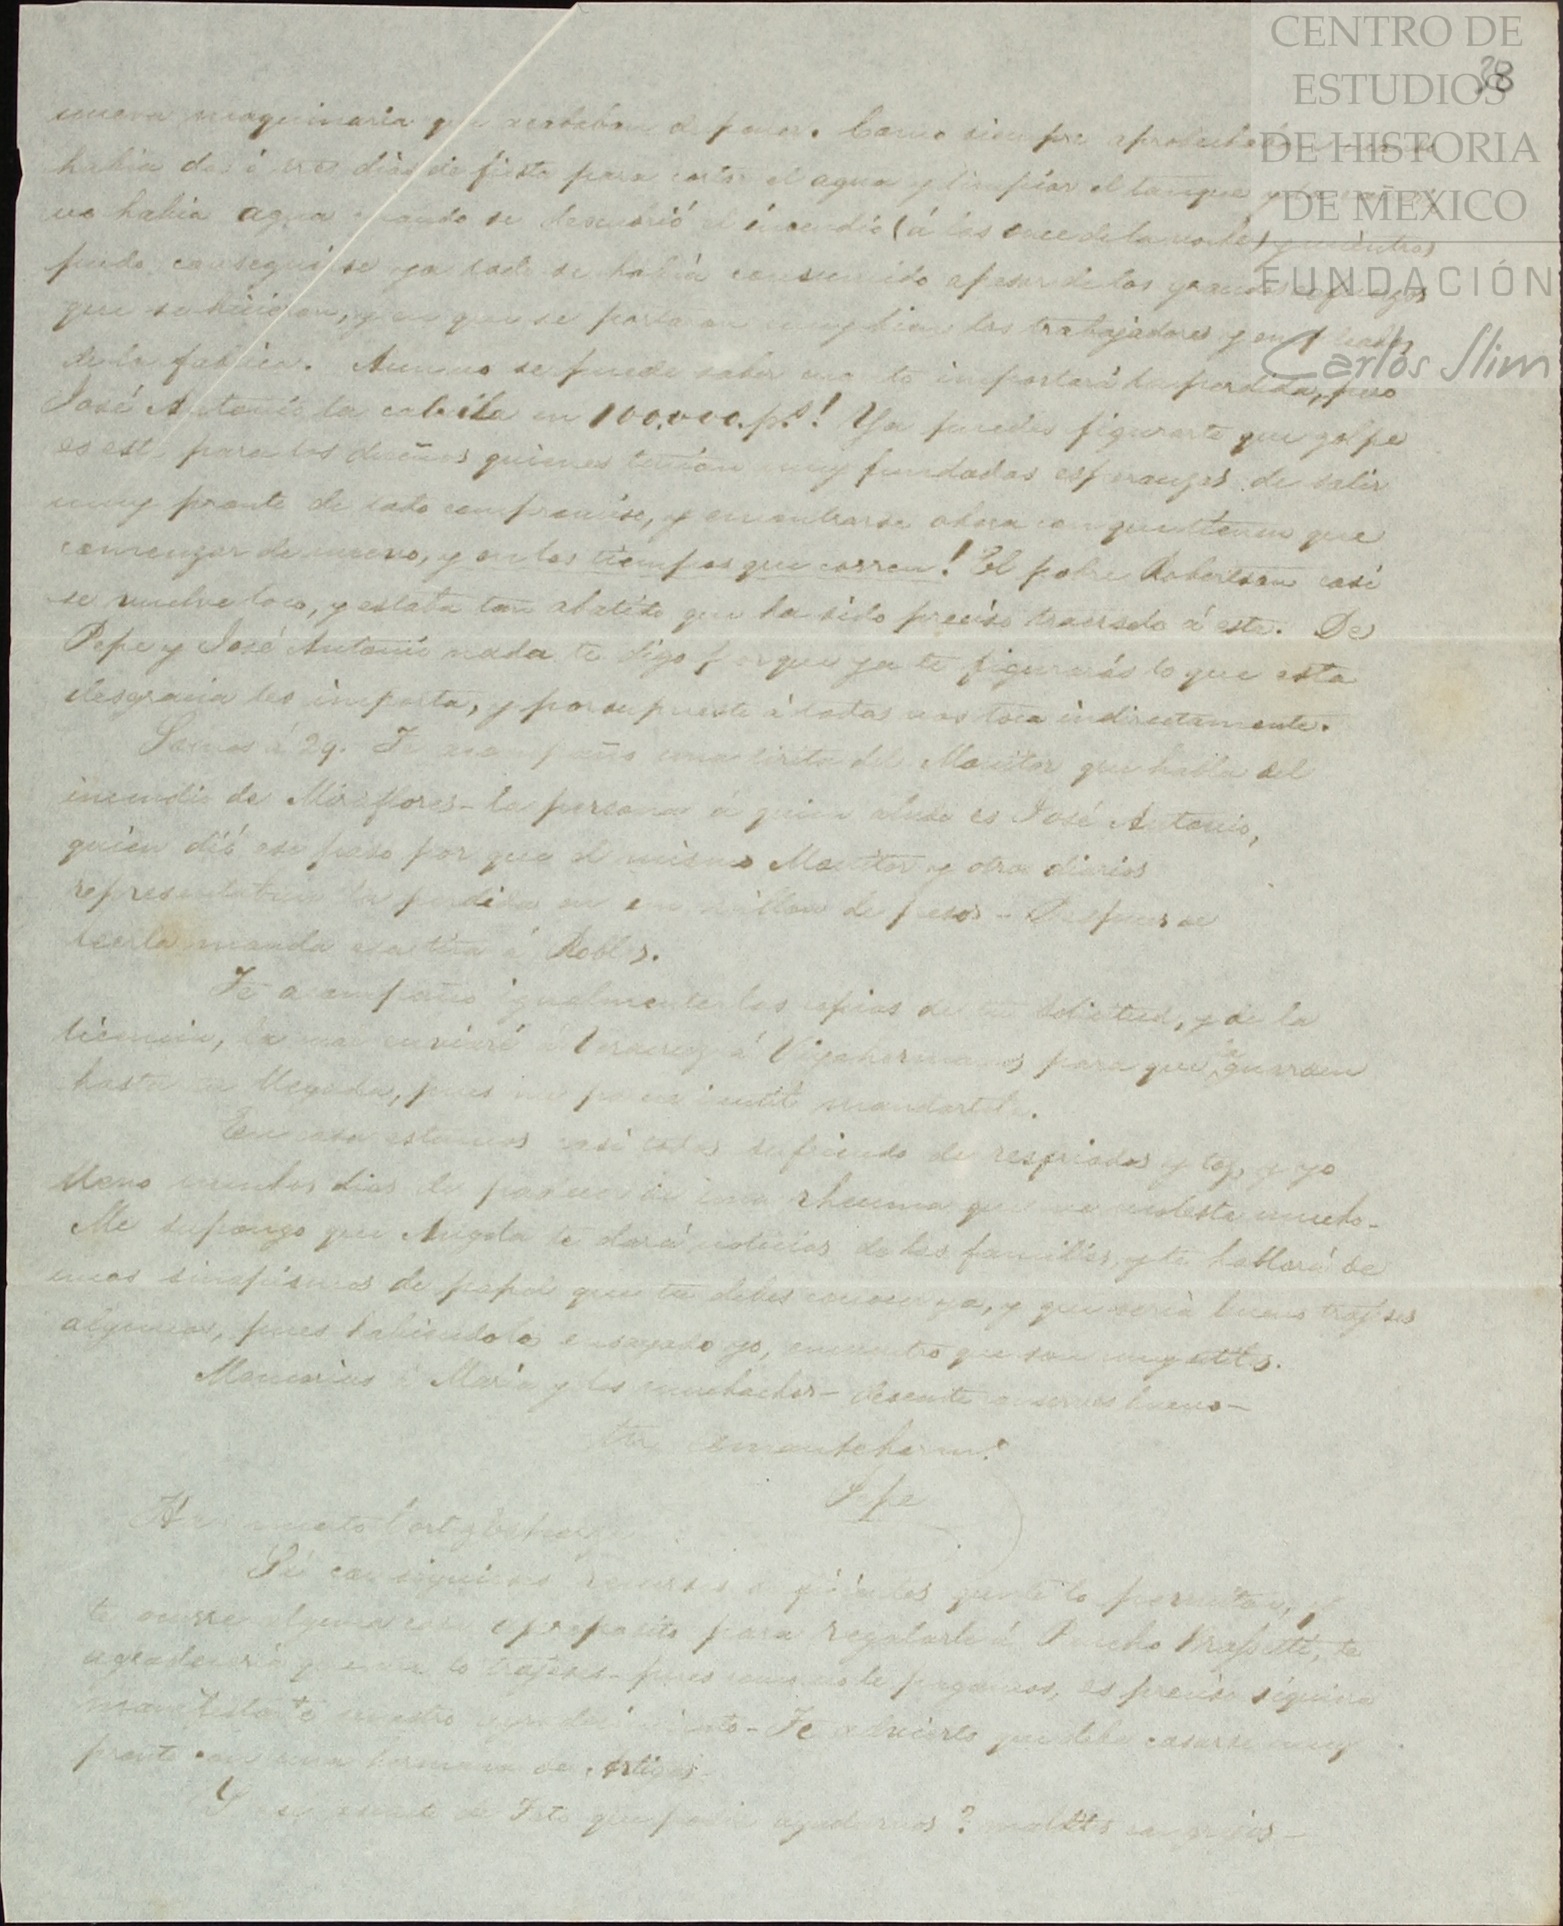 CENTRO DE
ESTUDIOS
DE HISTORIA
DE MÉXICO
FUNDACIÓN
Carlos Slim
38
nueva maquinaria que acababan de poner. Como siempre aprovechaban cuando
habia dos ó tres dias de fiesta para cortar el agua y limpiar el tanque,
no habia agua cuando se descubrió el incendio (á las once de la noche) y mientras
pudo conseguirse ya todo se habia consumido apesar de los grandes esfuerzos
que se hicieron, y en que se portaron muy bien los trabajadores y empleados
de la fabrica. Aun no se puede saber cuanto importará la perdida, pero
José Antonio la calcula en 100,000.ps.! Ya puedes figurarte que golpe
es este para los dueños quienes tenian muy fundadas esperanzas de salir
muy pronto de todo compromiso, y encontrarse ahora con que tienen que
comenzar de nuevo, y en los tiempos que corren! El pobre Robertson casi
se vuelve loco, y estaba tan abatido que ha sido preciso traerselo á esta. De
Pepe y José Antonio nada te digo porque ya te figurarás lo que esta
desgracia les importa, y por supuesto á todos nos toca indirectamente.
Somos á 29. Te acompaño una tirita del Monitor que habla del
incendio de Miraflores - la persona á quien alude es José Antonio,
quien dió ese paso por que el mismo Monitor y otros diarios
representaban la perdida en un millon de pesos - Despues de
leerla manda esa tira á Robles.
Te acompaño igualmente las copias de tu solicitud, y de la
licencia, la que enviaré á Veracruz á Viya hermanos para que la guarden
hasta tu llegada, pues me parece inutil mandartela.
En casa estamos casi todos sufriendo de resfriados y tos, y yo
llevo muchos dias de padecer de una rheuma que me molesta mucho -
Me supongo que Angela te dará noticias de las familias, y te hablará de
unos sinapismos de papel que tu debes conocer ya, y que seria bueno trajeses
algunos, pues habiendolos ensayado yo, encuentro que son muy utiles.
Memorias á Maria y los muchachos - deseate conserves bueno -
tu amante herm.º
Pepe
Ha muerto
Si consiguieses recursos suficientes que te lo permitan, y
te ocurre alguna cosa aproposito para regalarle á Pancho, te
agradeceria que me lo trajeses - pues como no le pagamos, es preciso siquiera
manifestarle nuestro agradecimiento - Te advierto que debe casarse muy
pronto con una hermana de Artigas.